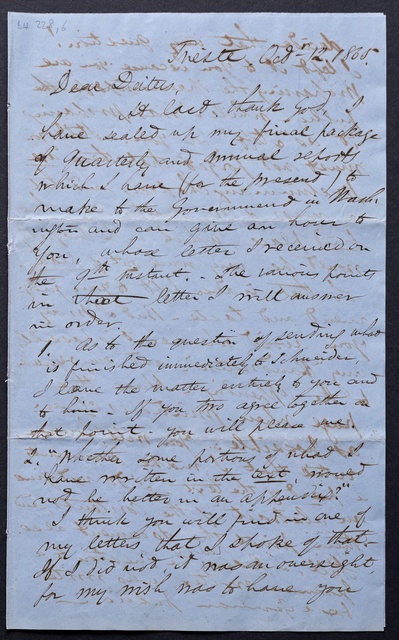 L4 228,6
Trieste Octr 12. 1865.
Dear Deiters,
At last, thank God, I
have sealed up my final package
of Quarterly and annual reports
which I have (for the present) to
make to the Government in Wash-
ington and can give an hour to
you, whose letter I received on
the 9th instant. - The various points
in that letter I will answer
in order.
1. As to the question of sending what
is finished immediately to Schneider,
I leave the matter entirely to you and
to him - If you two agree together on
that point - you will please me.
2. "Whether some portions of what I
have written in the text, would
not be better in an appendix?"
I think you will find in one of
my letters that I spoke of that -
If I did not it was an oversight,
for my wish was to have you